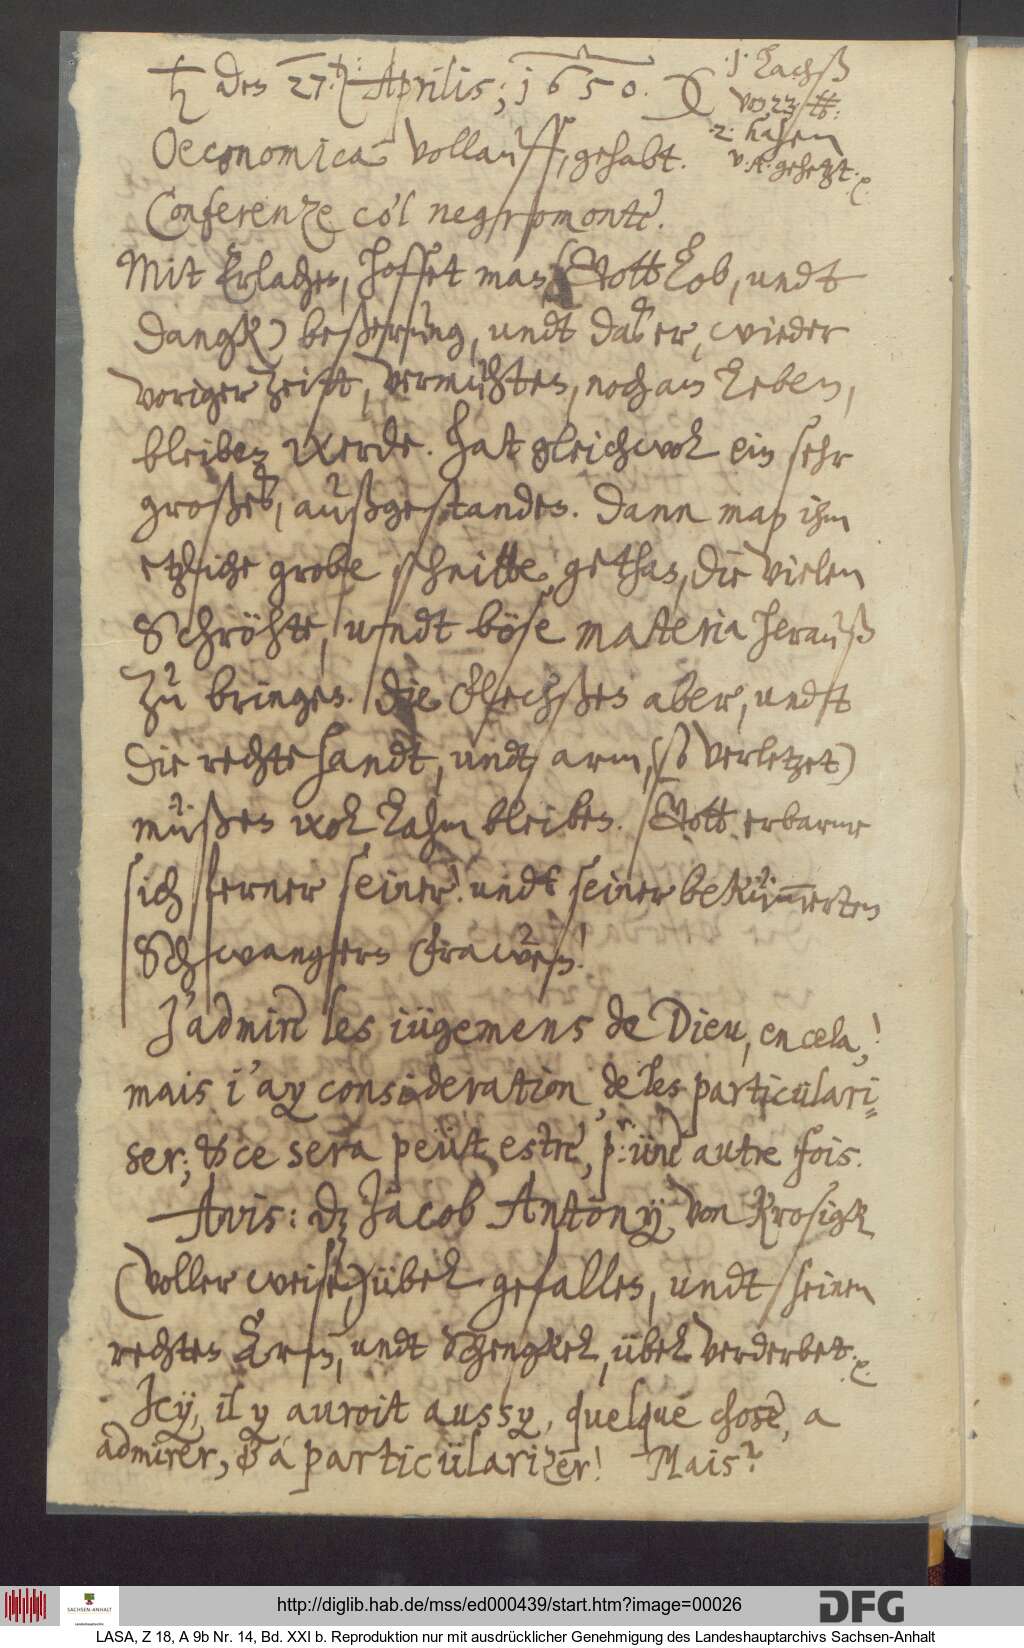 ♄ den 27.ten: Aprilis; 1650.
.1. Lachß
von 23 ℔:
.2. hasen
v. A. gehetzt. ⁘
Oeconomica vollauff, gehabt.
Conferenze cò'l negromonte.
Mit Erlachen, hoffet man, (Gott Lob, undt
dangk) beßerung, undt daß er, wieder
voriger zeitt, vermuhten, noch am Leben,
bleiben werde. Hat gleichwol ein sehr
großes, außgestanden. Dann man ihm
etzliche grobe schnitte, gethan, die vielen
Schröhte, undt böse materia herauß
zu bringen. Die flechßen aber, undt
die rechte handt, undt arm, (so verletzet)
müßen wol Lahm bleiben. Gott erbarme
sich ferner seiner! undt seiner bekümmerten
Schwangern Frawen!
J'admire les iügemens de Dieu, en cela,!
mais i'ay consideration, de les particülari-
ser; & ce sera peüt estre, pr: üne autre fois.
Avis: dz Jacob Antony, von Krosigk
(voller weise,) übel gefallen, undt seinen
rechten Arm, undt Schengkel, übel verderbet.
Icy, il y auroit aussy, quelque chose, a
admirer, & a particülarizer! Mais?
http://diglib.hab.de/mss/ed000439/start.htm?image=00026
SACHSEN-ANHALT
DFG
LASA, Z 18, A 9b Nr. 14, Bd. XXI b. Reproduktion nur mit ausdrücklicher Genehmigung des Landeshauptarchivs Sachsen-Anhalt